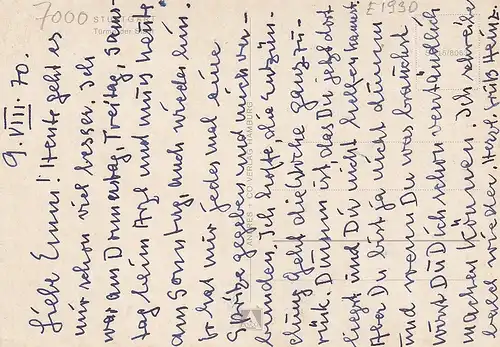 7000 STUTTGART
E1930
9. VIII. 70.
Liebe Emmi! Heute geht es
mir schon viel besser. Ich
war am Donnerstag, Freitag, Sams-
tag beim Arzt und muss heute
am Sonntag, auch wieder hin.
Er hat mir jedes mal eine
Spritze gegeben und mich ver-
bunden. Ich hoffe die Entzün-
dung geht die Woche ganz zu-
rück. Dumm ist, das Du jetzt dort
liegst und Dir nicht helfen kannst.
Aber Du bist ja nicht dumm
und wenn Du was brauchst
wirst Du Dich schon verständlich
machen können. Ich schreibe
bald wieder. Hast heute keine